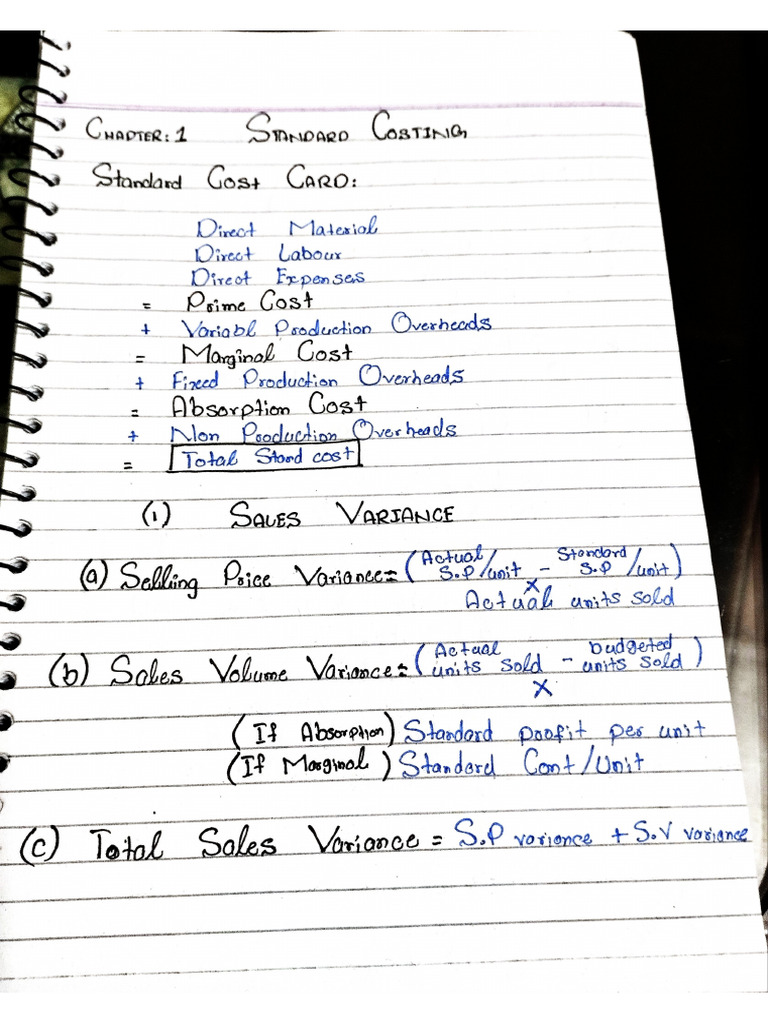 CHAPTER: 1 STANDARD COSTING
Standard Cost CARD:
Direct Material
Direct Labour
Direct Expenses
= Prime Cost
+ Variabl Production Overheads
= Marginal Cost
+ Fixed Production Overheads
= Absorption Cost
+ Non Production Overheads
= Total Stand cost
(1) SALES VARIANCE
(a) Selling Price Variance = (Actual S.P/unit - Standard S.P/unit)
x
Actual units sold
(b) Sales Volume Variance = (Actual units sold - budgeted units sold)
x
(If Absorption) Standard profit per unit
(If Marginal) Standard Cont/Unit
(c) Total Sales Variance = S.P variance + S.V variance